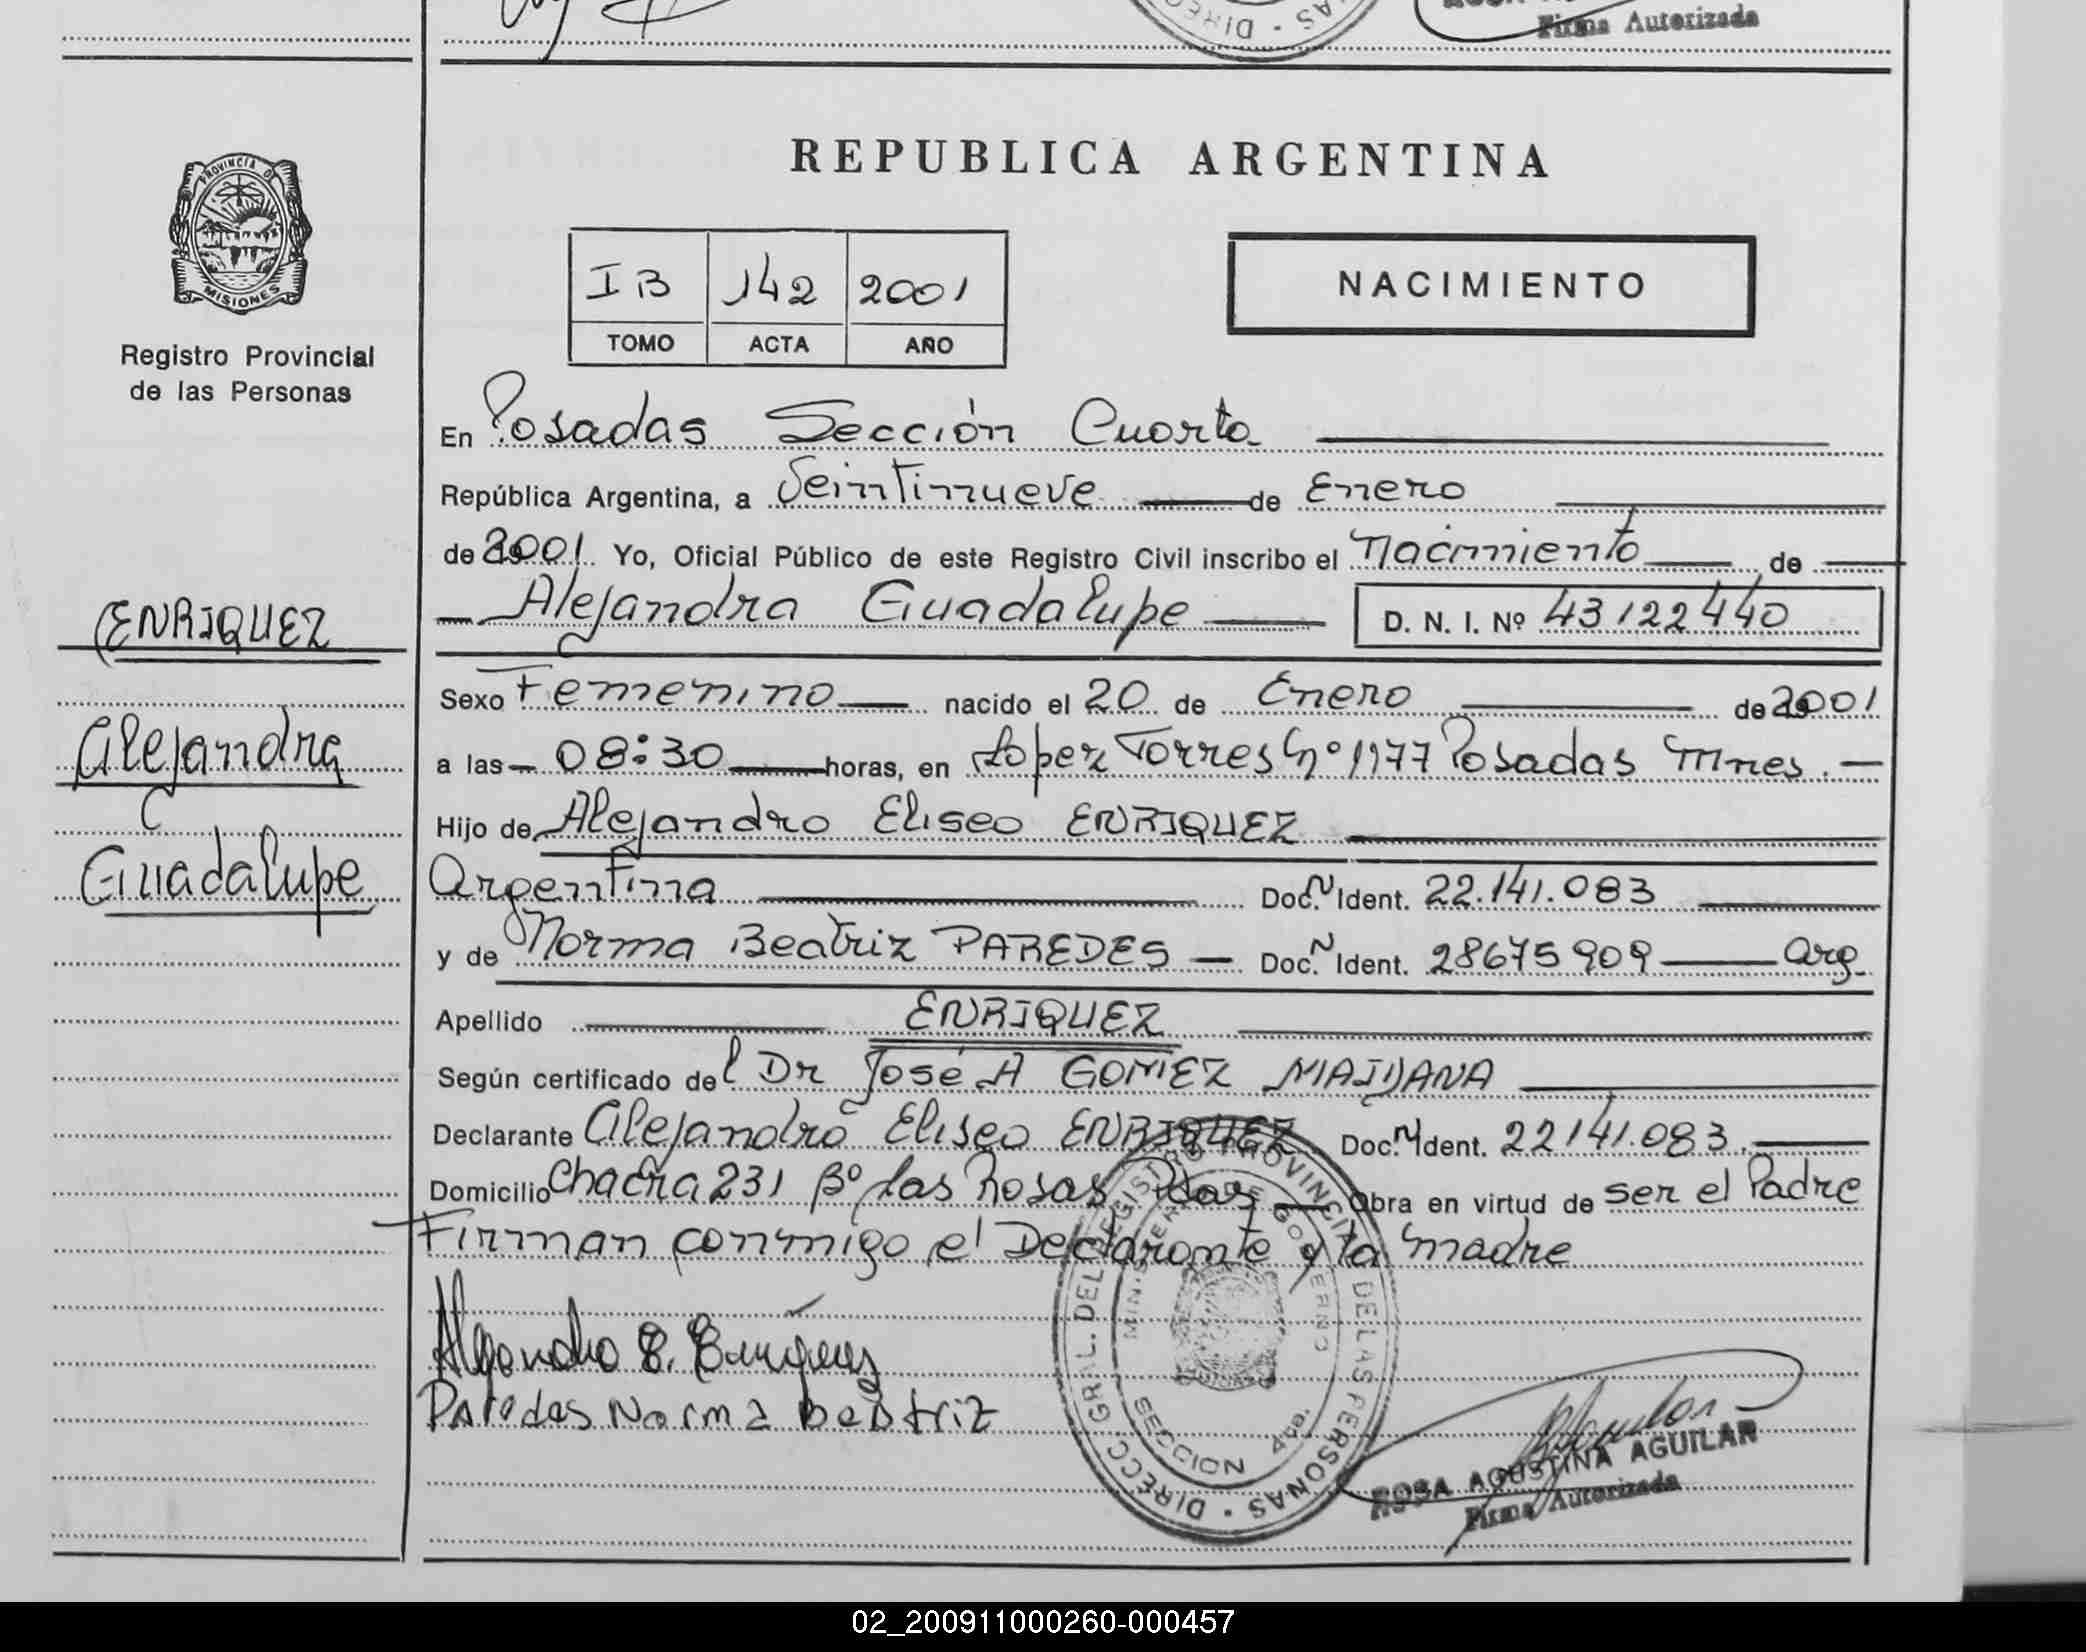 Firma Autorizada
REPUBLICA ARGENTINA
PROVINCIA DE
MISIONES
Registro Provincial
de las Personas
IB 142 2001
TOMO ACTA AÑO
NACIMIENTO
En Posadas Sección Cuarta
República Argentina, a Veintinueve de Enero
de 2001 Yo, Oficial Público de este Registro Civil inscribo el Nacimiento de
Alejandra Guadalupe D. N. I. Nº 43122440
ENRIQUEZ
Alejandra
Guadalupe
Sexo Femenino nacido el 20 de Enero de 2001
a las 08:30 horas, en Lopez Torres Nº 1177 Posadas Mnes.
Hijo de Alejandro Eliseo ENRIQUEZ
Argentina Doc. N Ident. 22.141.083
y de Norma Beatriz PAREDES Doc. N Ident. 28675909 Arg.
Apellido ENRIQUEZ
Según certificado del Dr José A GOMEZ
Declarante Alejandro Eliseo ENRIQUEZ Doc. N Ident. 22141.083.
Domicilio Chacra 231 Bº las Rosas Pdas Obra en virtud de ser el Padre
Firman conmigo el Declarante y la madre
Alejandro E. Enríquez
Paredes Norma Beatriz
DIRECC. GRAL. DEL REGISTRO PROVINCIAL DE LAS PERSONAS
MINISTERIO DE GOBIERNO
SECCION 4ta.
ROSA AGUSTINA AGUILAR
Firma Autorizada
02_200911000260-000457